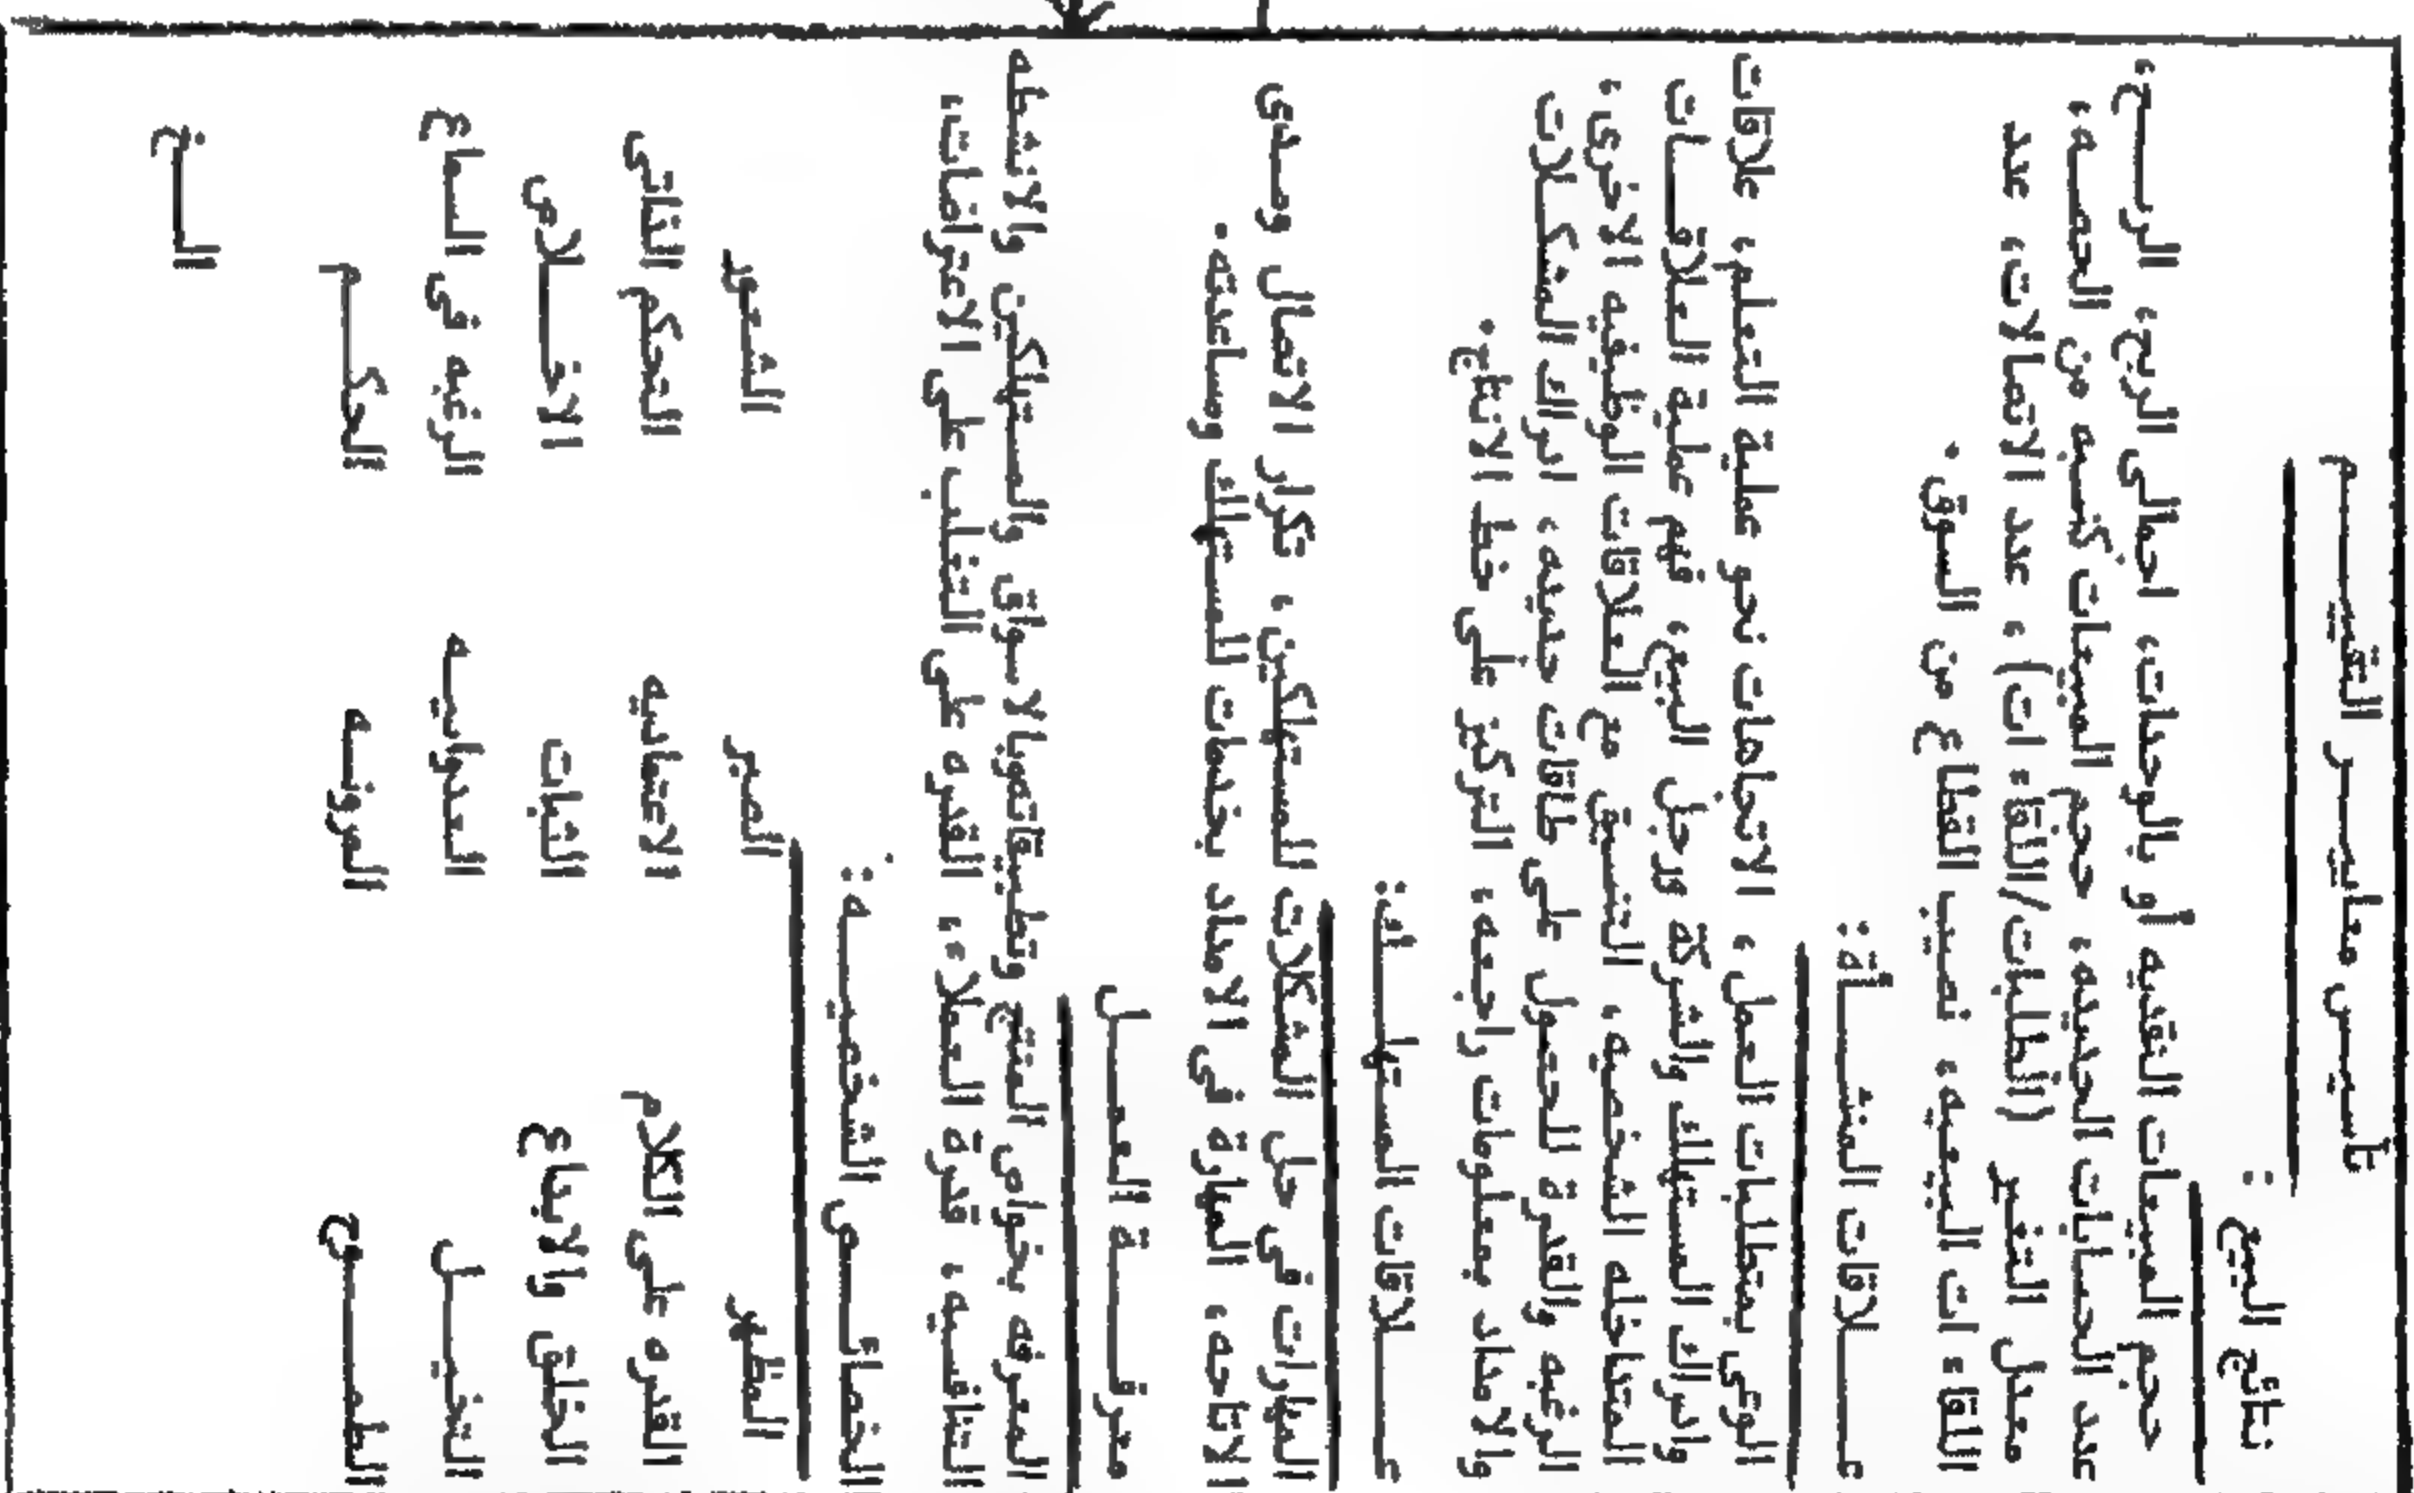 تأسيس معايير التقييم
نتائج البيع :
حجم المبيعات النقديه أو بالوحدات، اجمالى الربح، الربح،
عدد الحسابات الجديده، حجم المبيعات كنسبه من الحصه،
معدل التغير (الطلبات/اللقاءات) ، عدد الاتصالات، عدد
اللقاءات البيعيه، نصيب القطاع من السوق.
علاقات المنشأة:
الوعى بمتطلبات العمل، الاتجاهات نحو عملية التعلم، علاقات
وادراك المستهلك والشركة ورجل البيع، فهم عملية العلاقات
المتداخله الشخصيه، التنسيق مع العلاقات الوظيفيه الاخرى،
الرغبه والقدرة للحصول على طاقات جديده، ادراك المشكلات
والامداد بمعلومات راجعه، التركيز على خط الانتاج.
علاقات المستهلك:
المهارات في حل المشكلات للمستهلكين، تكرار الاتصال ومدى
الاتاحه، المهارة فى الامداد بخدمات للمستهلك ومساعدته.
معرفة العمل
المعرفه بخواص المنتج وتطبيقاته وبالاسواق والمستهلكين والانشطه
التنافسيه، قدرة العملاء، القدره على التغلب على الاعتراضات،
الخصائص الشخصية:
المظهر الصبر الشعور
القدره على الكلام الاعتماديه التحكم الذاتى
الخلق والابداع الثبات الاخلاص
التخيل العدوانيه الرغبه فى السماع
الطموح المرونه الحكم
الخ